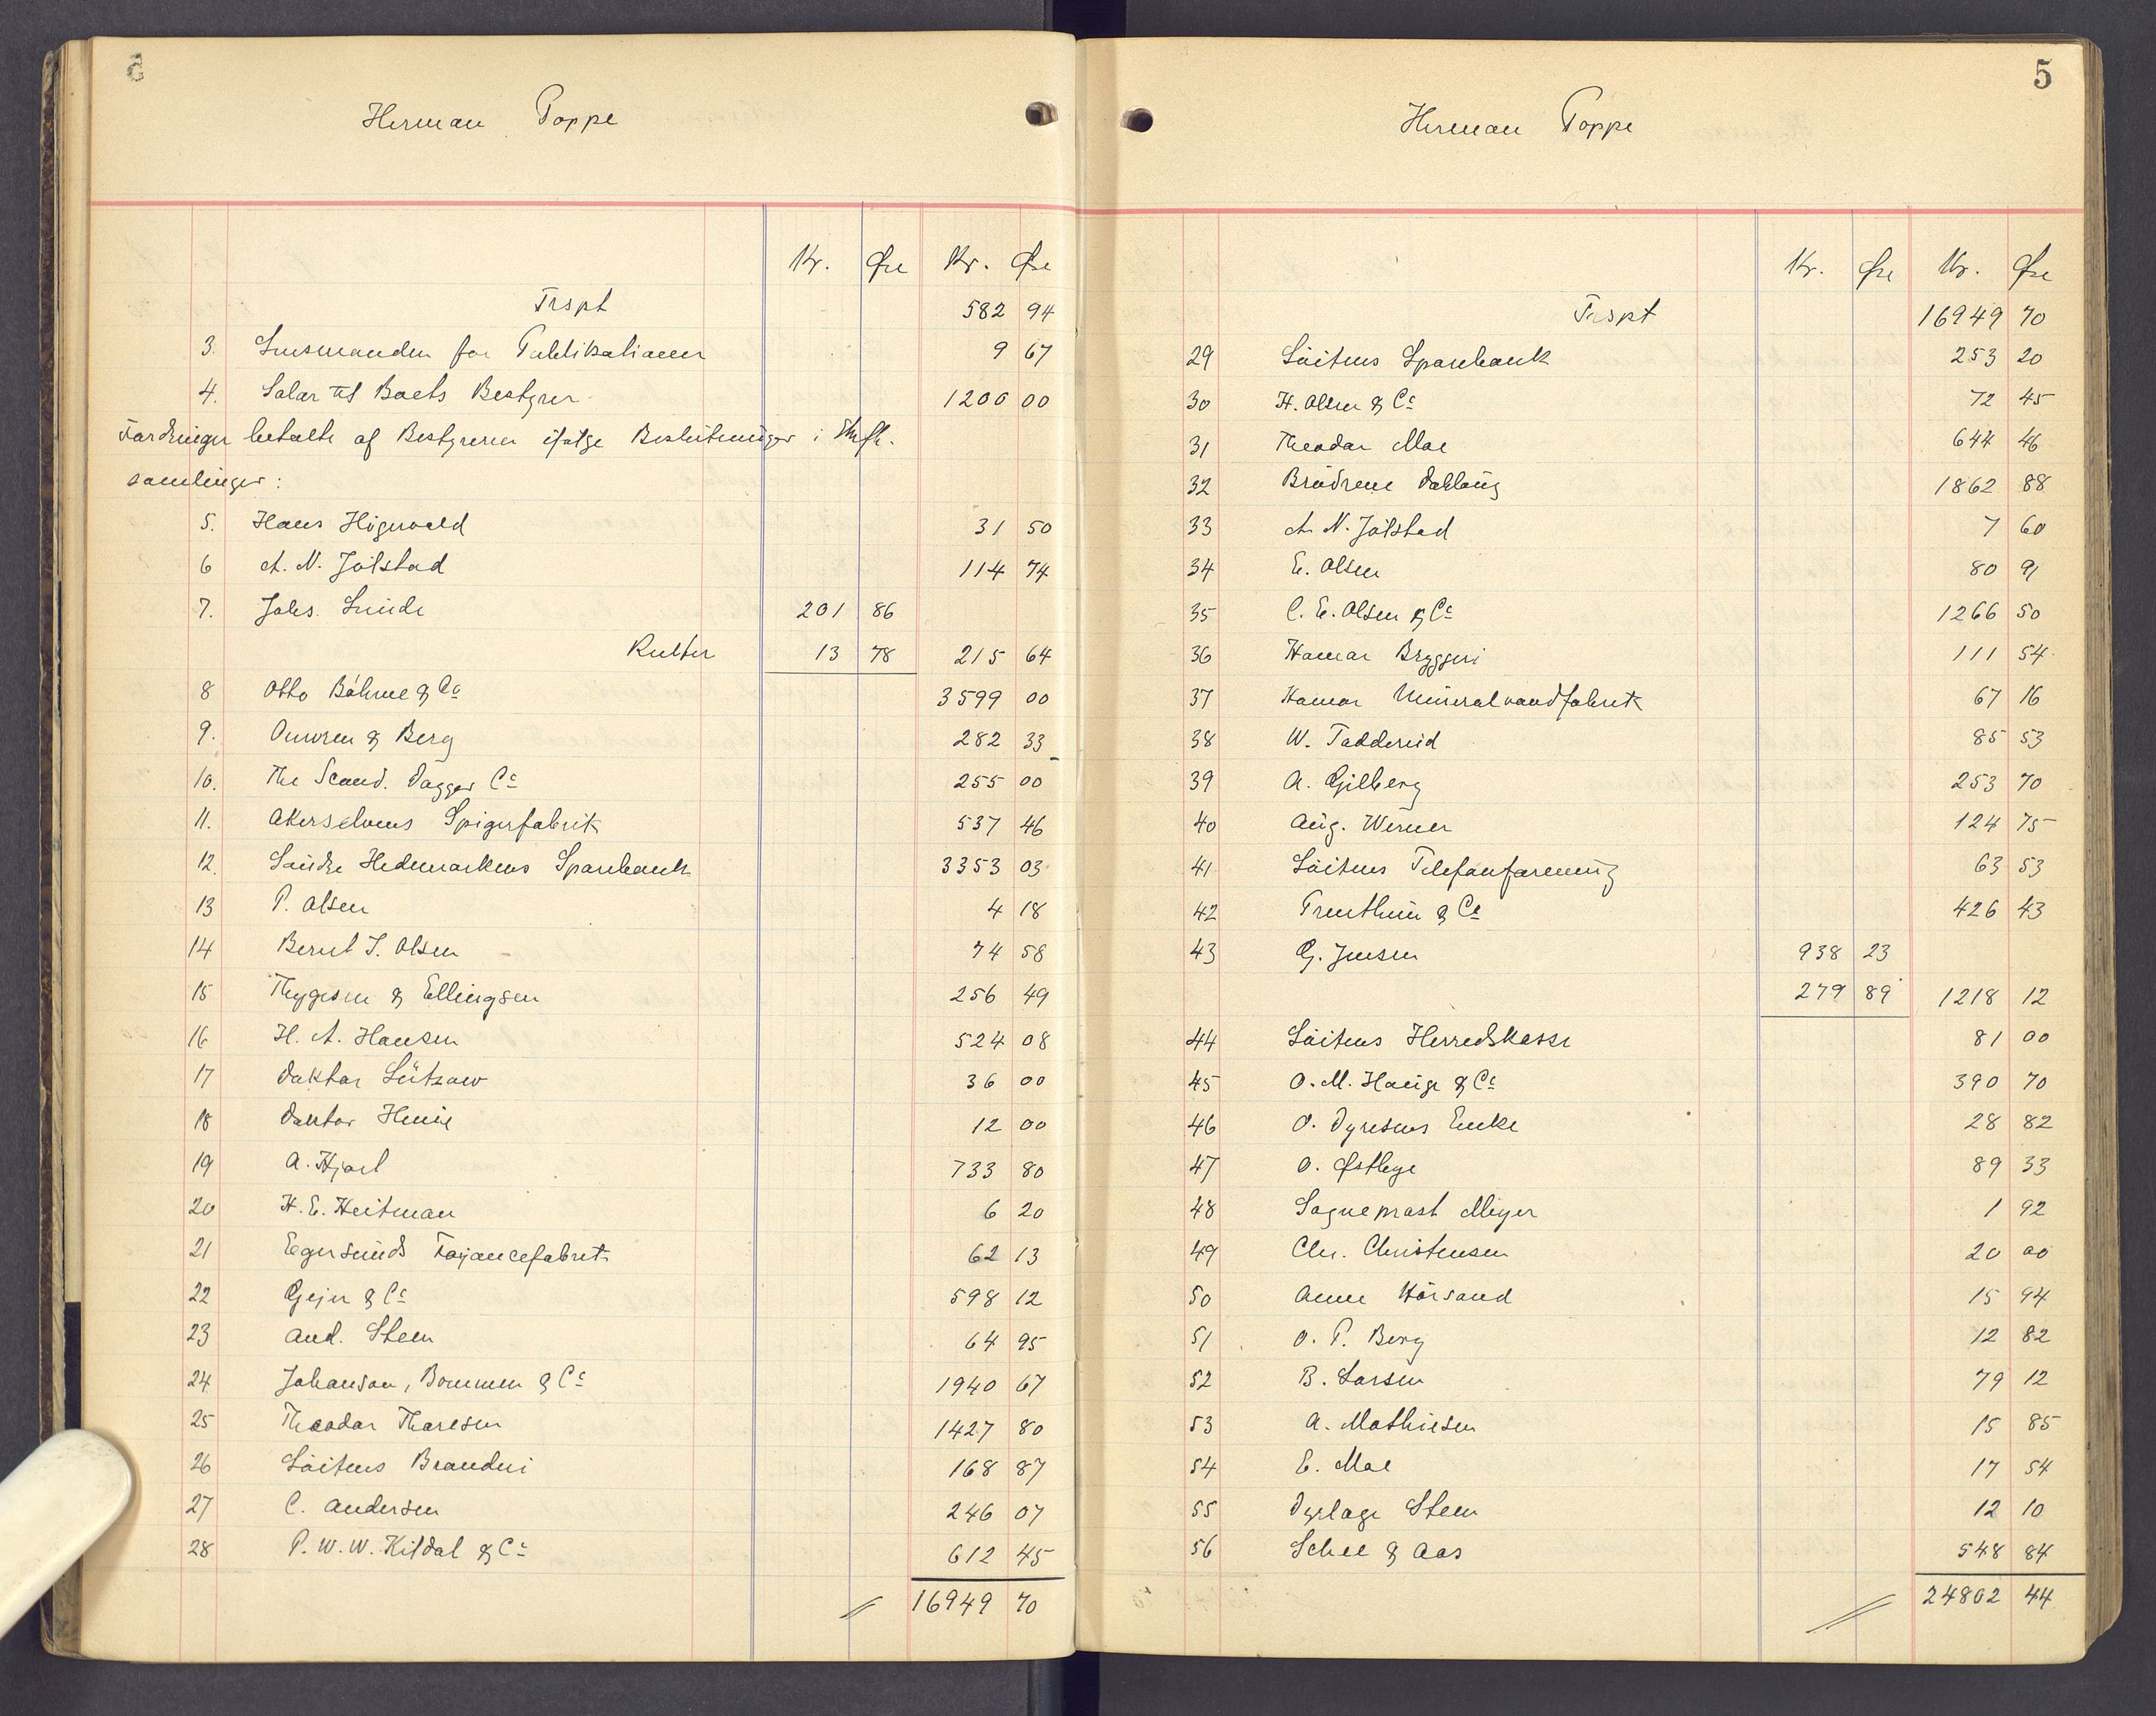 Herman Poppe
Kr. Øre Kr. Øre
Trspt 582 94
3. Lensmanden for Publikationer 9 67
4. Salar til Boets Bestyrer 1200 00
Fordringer betalte af Bestyreren ifølge Beslutninger i Skifte-
samlinger:
5. Hans Högnvald 31 50
6 A. N. Jölstad 114 74
7. Johs. Lunde 201 86
Renter 13 78 215 64
8 Otto Böhme & Co 3599 00
9. Omoren & Berg 282 33
10. The Scand. Dagger Co 255 00
11. Akerselvens Spigerfabrik 537 46
12. Søndre Hedemarkens Sparebank 3353 03
13 P. Olsen 4 18
14 Bernt I. Olsen 74 58
15 Thygesen & Ellingsen 256 49
16 H. A. Hansen 524 08
17 Doktor Lützow 36 00
18 Doktor Henie 12 00
19 A. Hjorl 733 80
20 H. E. Heitman 6 20
21 Egersunds Fayancefabrik 62 13
22 Gejer & Co 598 12
23 And. Steen 64 95
24 Johanson, Bommen & Co 1940 67
25 Theodor Thoresen 1427 80
26 Löitens Brænderi 168 87
27 C. Andersen 246 07
28 P. W. W. Kildal & Co 612 45
16949 70
5
Herman Poppe
Kr. Øre Kr. Øre
Trspt 16949 70
29 Löitens Sparebank 253 20
30 H. Olsen & Co 72 45
31 Theodor Moe 644 46
32 Brödrene Dobloug 1862 88
33 A. N. Jölstad 7 60
34 E. Olsen 80 91
35 C. E. Olsen & Co 1266 50
36 Hamar Bryggeri 111 54
37 Hamar Mineralvandfabrik 67 16
38 W. Taddereid 85 53
39 A. Gilberg 253 70
40 Aug. Werner 124 75
41 Löitens Telefonforening 63 53
42 Trenthum & Co 426 43
43 G. Jensen 938 23
279 89 1218 12
44 Löitens Herredskasse 81 00
45 O. M. Hauge & Co 390 70
46 O. Dyresens Enke 28 82
47 O. Østbye 89 33
48 Sogneprest Meyer 1 92
49 Chr. Christensen 20 00
50 Anne Hörsand 15 94
51 O. P. Berg 12 82
52 B. Larsen 79 12
53 A. Mathiesen 15 85
54 E. Moe 17 54
55 Dyrlæge Steen 12 10
56 Schee & Aas 548 84
24802 44